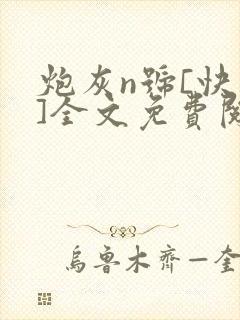 炮灰n號[快
]全文免費閱
烏魯木齊—奎